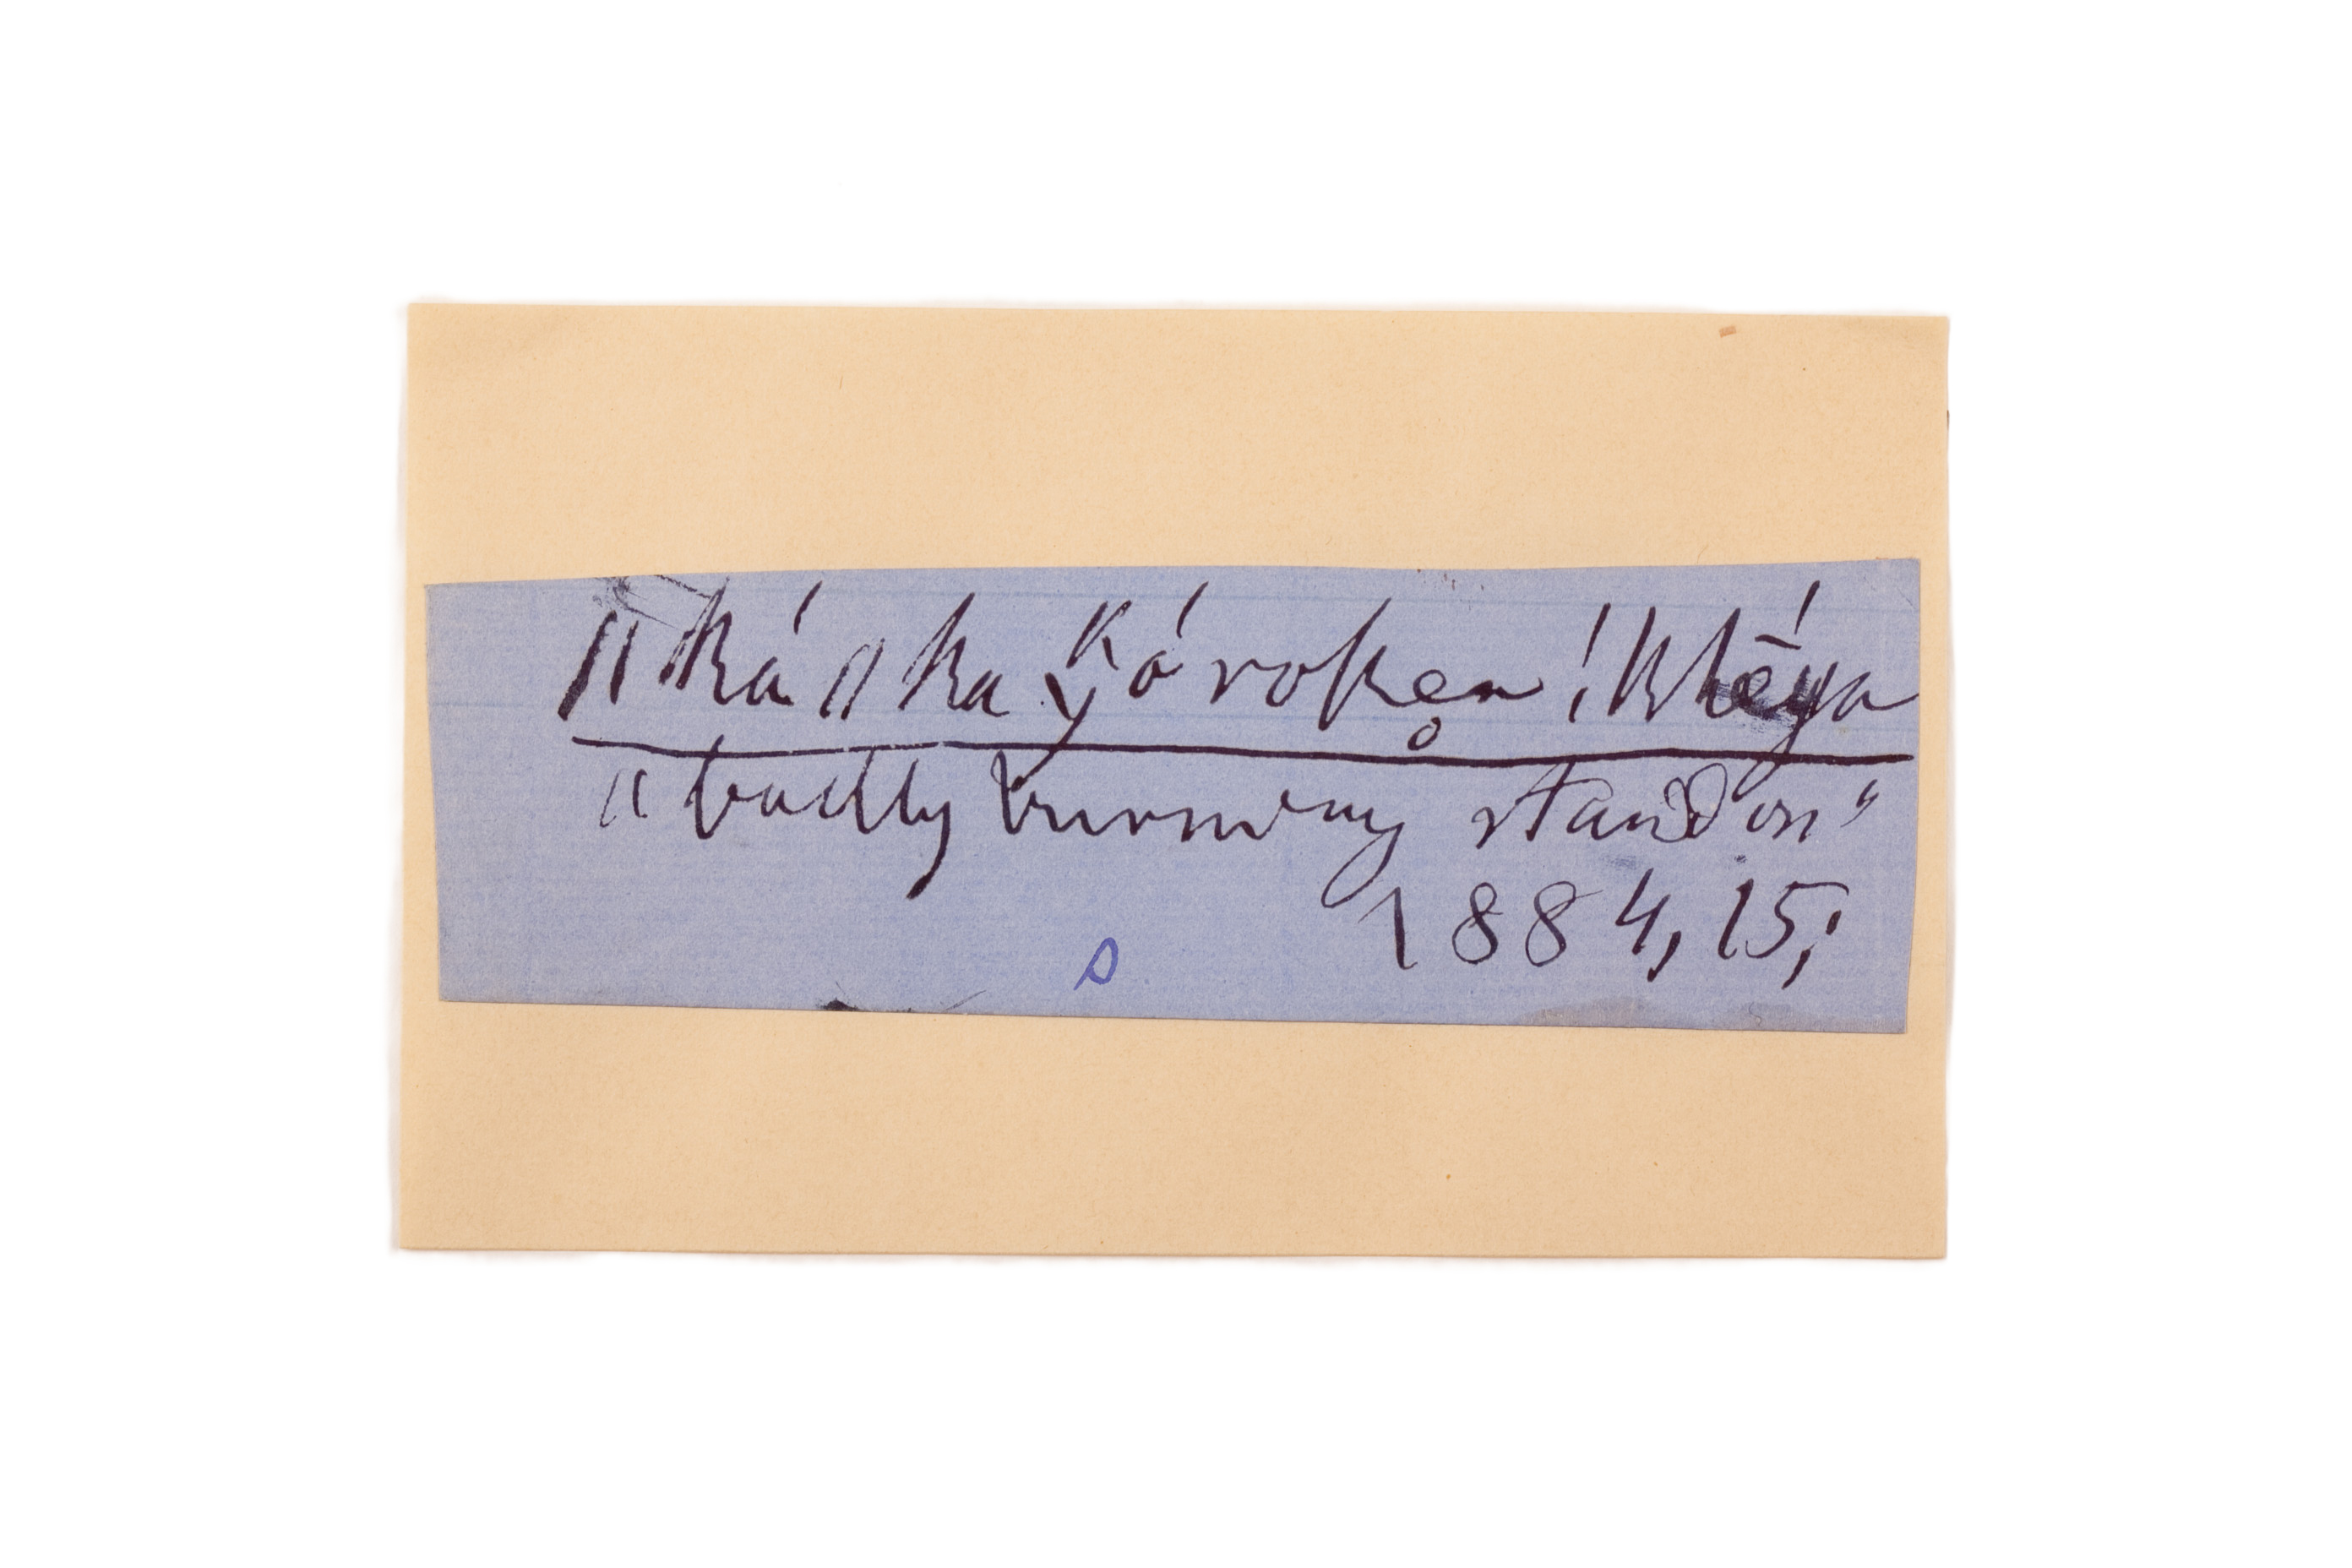 ǁká ǁka ꞣóroke̥n !khḗya
"badly burning stand on"
1884, 15;
s